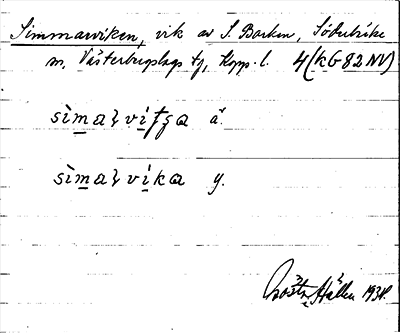 Simmarviken, vik av S. Barken, Söderbärke
sn, Västerbergslags tg, Kopp. l. 4 (KG 82 NV)
sìmaꝛvitʒa ä.
sìmaꝛvika y.
Hällen 1934.